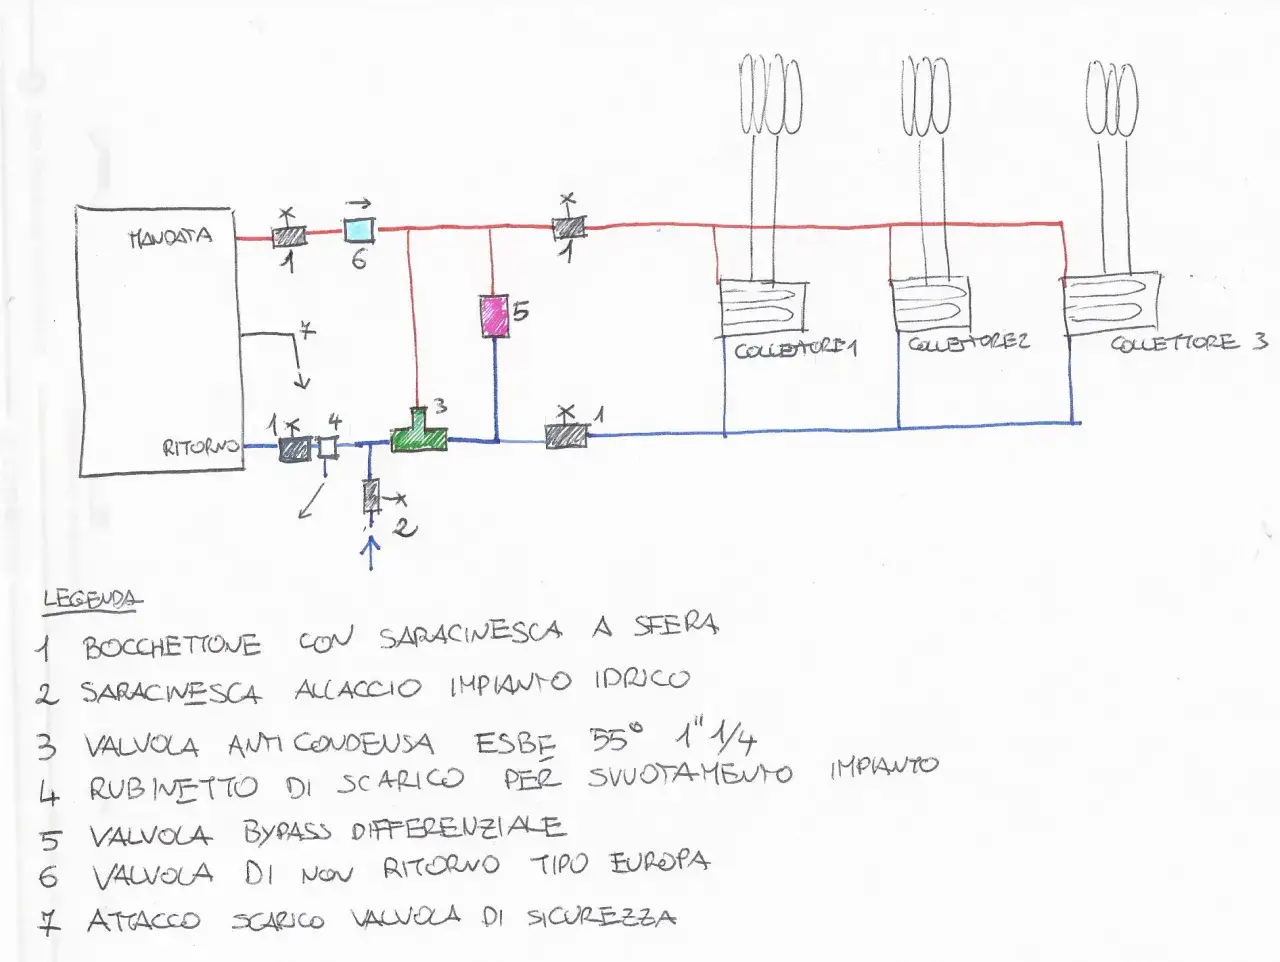 MANDATA
1
6
1
5
7
COLLETTORE 1
COLLETTORE 2
COLLETTORE 3
3
1
4
1
RITORNO
2
LEGENDA
1 BOCCHETTONE CON SARACINESCA A SFERA
2 SARACINESCA ALLACCIO IMPIANTO IDRICO
3 VALVOLA ANTICONDENSA ESBE 55° 1" 1/4
4 RUBINETTO DI SCARICO PER SVUOTAMENTO IMPIANTO
5 VALVOLA BYPASS DIFFERENZIALE
6 VALVOLA DI NON RITORNO TIPO EUROPA
7 ATTACCO SCARICO VALVOLA DI SICUREZZA